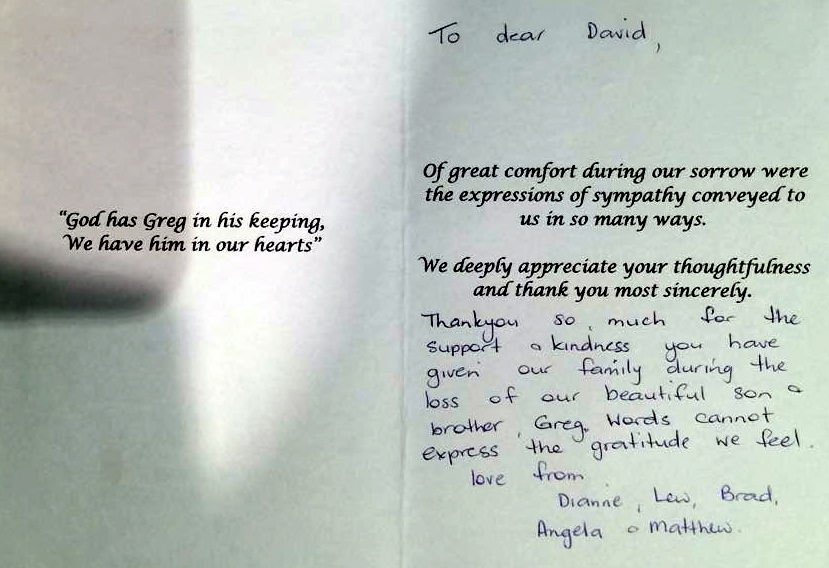 "God has Greg in his keeping,
We have him in our hearts"
To dear David,
Of great comfort during our sorrow were
the expressions of sympathy conveyed to
us in so many ways.
We deeply appreciate your thoughtfulness
and thank you most sincerely.
Thankyou so much for the
support & kindness you have
given our family during the
loss of our beautiful son &
brother, Greg. Words cannot
express the gratitude we feel.
love from
Dianne, Lew, Brad,
Angela & Matthew.